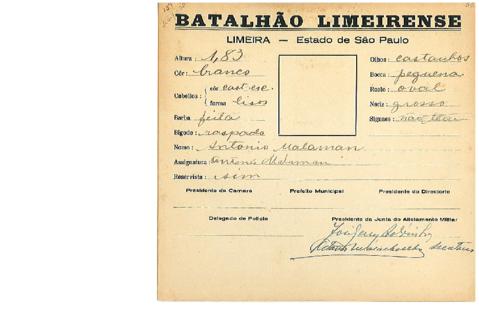 BATALHÃO LIMEIRENSE
LIMEIRA — Estado de São Paulo
Altura: 1,83
Olhos: castanhos
Côr: branco
Bocca: pequena
Cabellos: côr cast. esc.
Rosto: oval
forma lisos
Nariz: grosso
Barba feita
Signaes: não tem
Bigode: raspado
Nome: Antonio Malaman
Assignatura:
Reservista: sim
Presidente da Camara Prefeito Municipal Presidente do Directorio
Delegado de Policia Presidente da Junta de Alistamento Militar